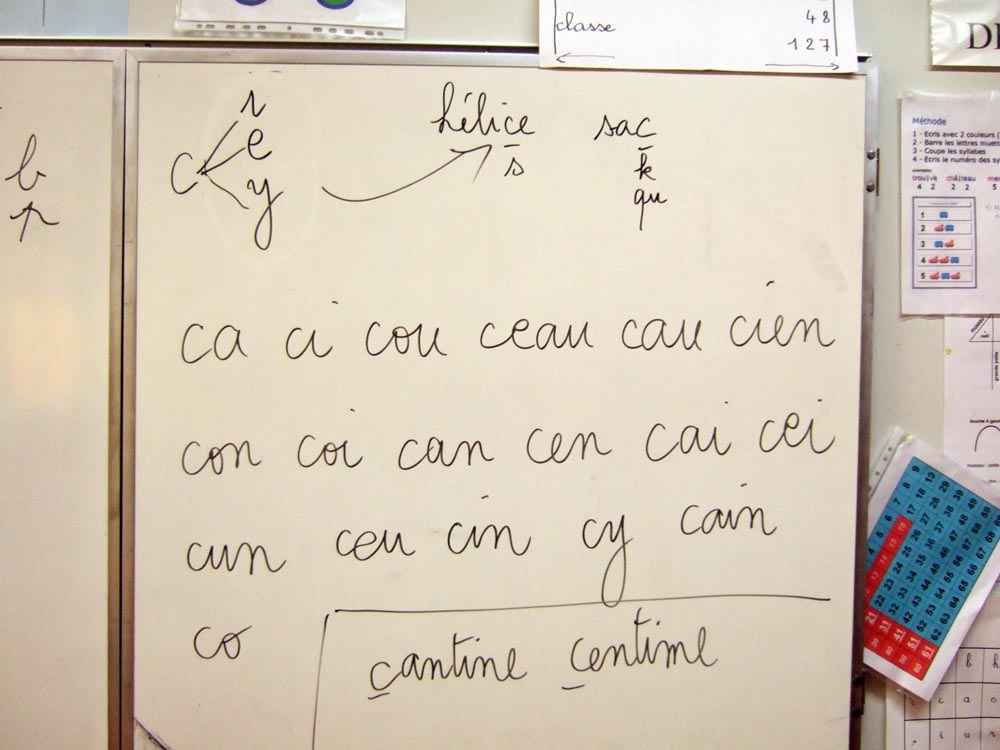 classe 48
127
DI
b
p
c i e y
hélice sac
s k
qu
ca ci cou ceau cau cien
con coi can cen cai cei
cun ceu cin cy cain
co cantine centime
Méthode
1 - Ecris avec 2 couleurs (
2 - Barre les lettres muett
3 - Coupe les syllabes
4 - Ecris le numéro des sy
exemples
trou|ve châ|teau me
4 2 2 2 5
1
2
3
4
5